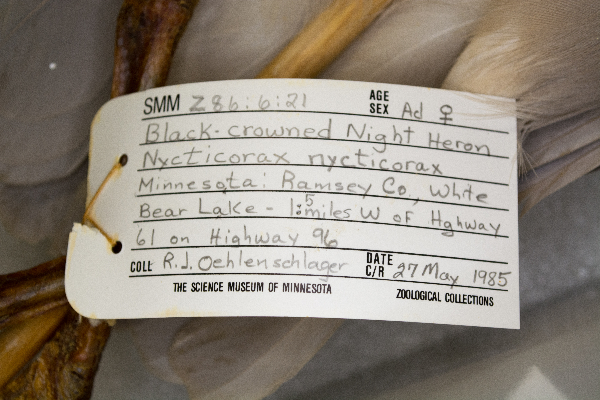 SMM Z86:6:21 AGE SEX Ad ♀
Black-crowned Night Heron
Nycticorax nycticorax
Minnesota: Ramsey Co., White
Bear Lake - 1.5 miles W of Hghway
61 on Highway 96
COLL R.J. Oehlenschlager DATE C/R 27 May 1985
THE SCIENCE MUSEUM OF MINNESOTA ZOOLOGICAL COLLECTIONS